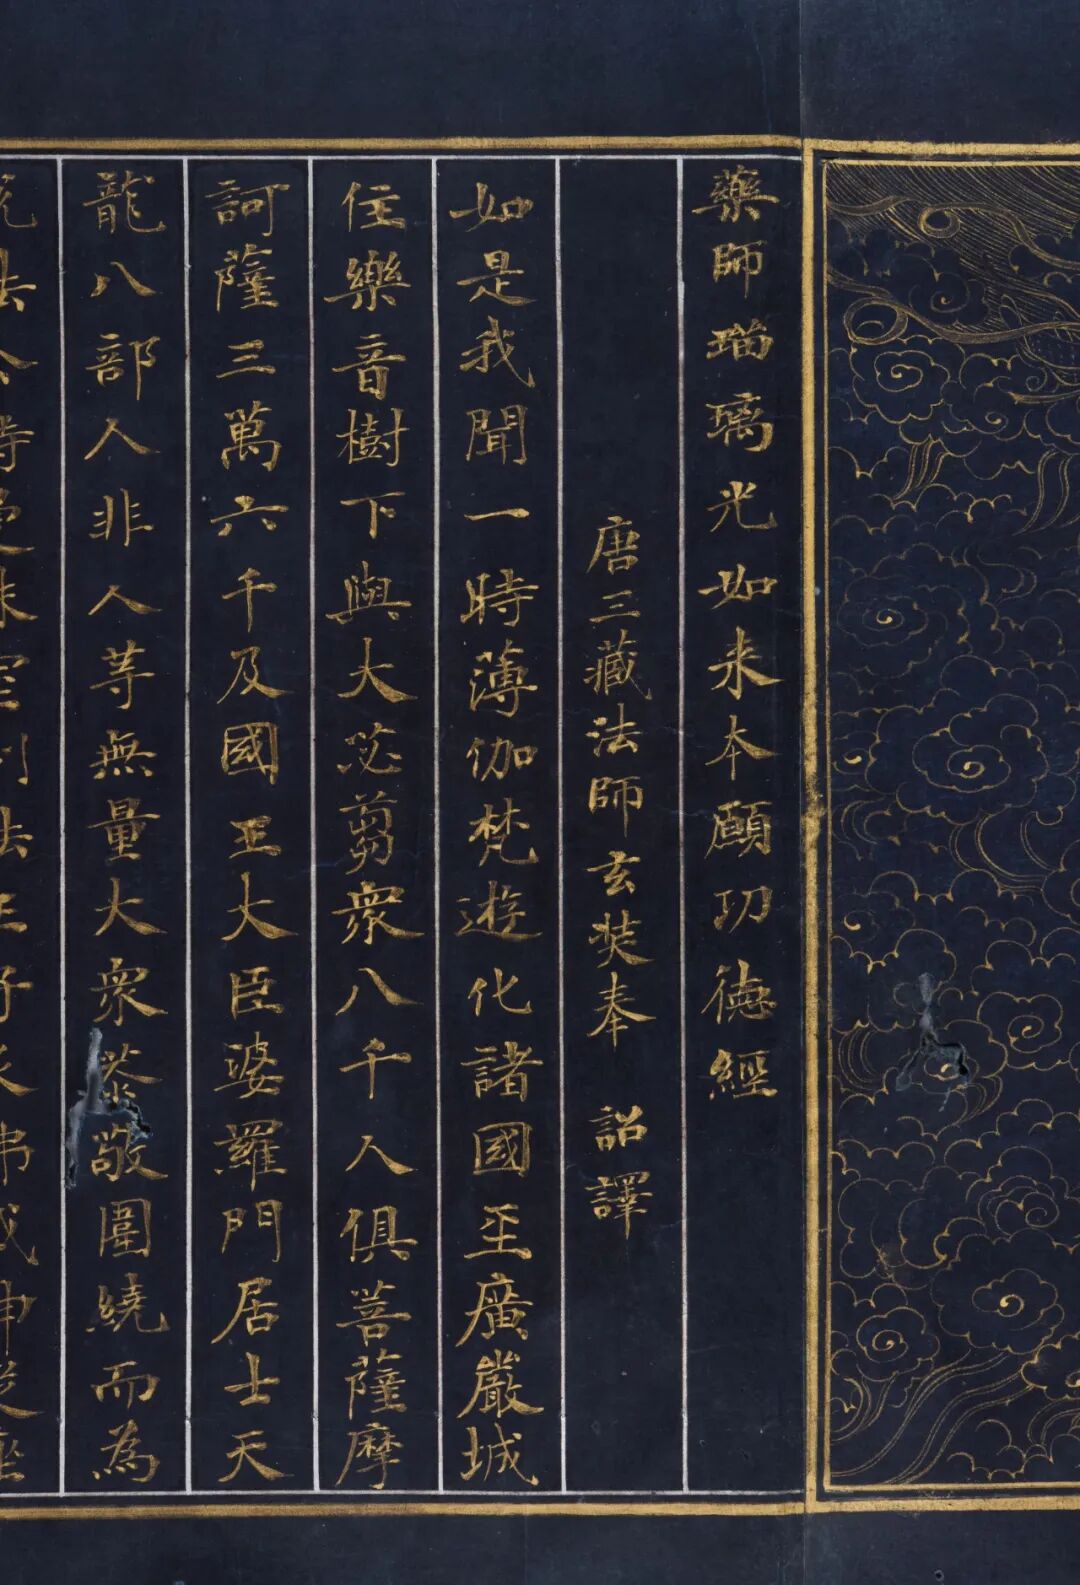 藥師瑠璃光如来本願功德經
唐三藏法師玄奘奉　詔譯
如是我聞一時薄伽梵遊化諸國至廣嚴城
住樂音樹下與大苾蒭衆八千人俱菩薩摩
訶薩三萬六千及國王大臣婆羅門居士天
龍八部人非人等無量大衆恭敬圍繞而為